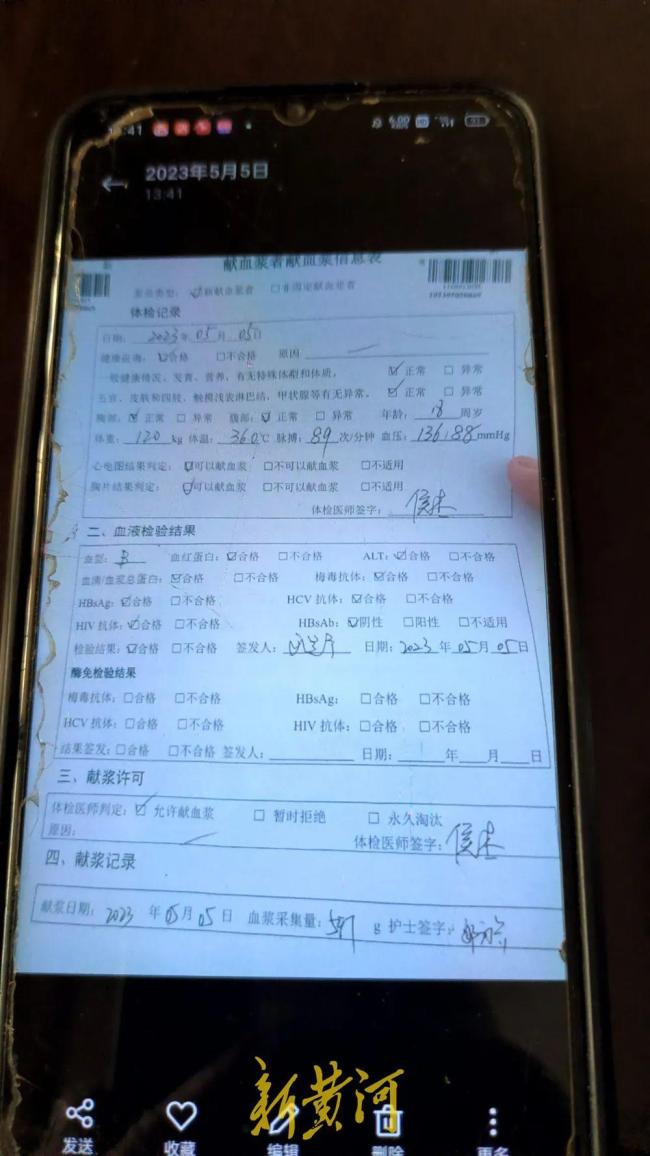 2023年5月5日
13:41
献血浆者献血浆信息表
体检记录
日期: 2023年05月05日
健康咨询: ☑合格 □不合格 原因
一般健康情况、发育、营养、有无特殊体型和体质。 ☑ 正常 □ 异常
五官、皮肤和四肢、触摸浅表淋巴结、甲状腺等有无异常。 ☑ 正常 □ 异常
胸部: ☑ 正常 □ 异常 腹部: ☑ 正常 □ 异常 年龄: 18 周岁
体重: 120 kg 体温: 36.0℃ 脉搏: 89 次/分钟 血压: 136/88 mmHg
心电图结果判定: ☑可以献血浆 □不可以献血浆 □不适用
胸片结果判定: ☑可以献血浆 □不可以献血浆 □不适用
体检医师签字:
二、血液检验结果
血型: B 血红蛋白: ☑合格 □不合格 ALT: ☑合格 □不合格
血清/血浆总蛋白: ☑合格 □不合格 梅毒抗体: ☑合格 □不合格
HBsAg: ☑合格 □不合格 HCV 抗体: ☑合格 □不合格
HIV 抗体: ☑合格 □不合格 HBsAb: ☑阴性 □阳性 □不适用
检验结果: ☑合格 □不合格 签发人: 日期: 2023 年 05 月 05 日
酶免检验结果
梅毒抗体: □合格 □不合格 HBsAg: □合格 □不合格
HCV 抗体: □合格 □不合格 HIV 抗体: □合格 □不合格
结果签发: □合格 □不合格 签发人: 日期: 年 月 日
三、献浆许可
体检医师判定: ☑ 允许献血浆 □ 暂时拒绝 □ 永久淘汰
原因:
体检医师签字:
四、献浆记录
献浆日期: 2023 年 05 月 05 日 血浆采集量: g 护士签字:
新黄河
发送 收藏 编辑 删除 更多